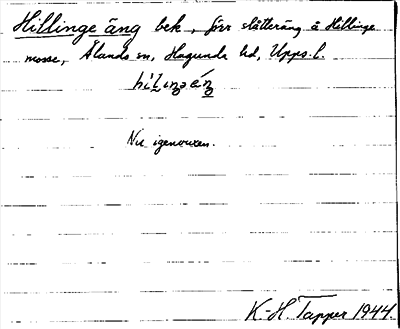 Hillinge äng bek, förr slåtteräng å Hillinge
mosse, Ålands sn, Hagunda hd, Upps. l.
Nu igenvuxen.
K.-H. Tapper 1944